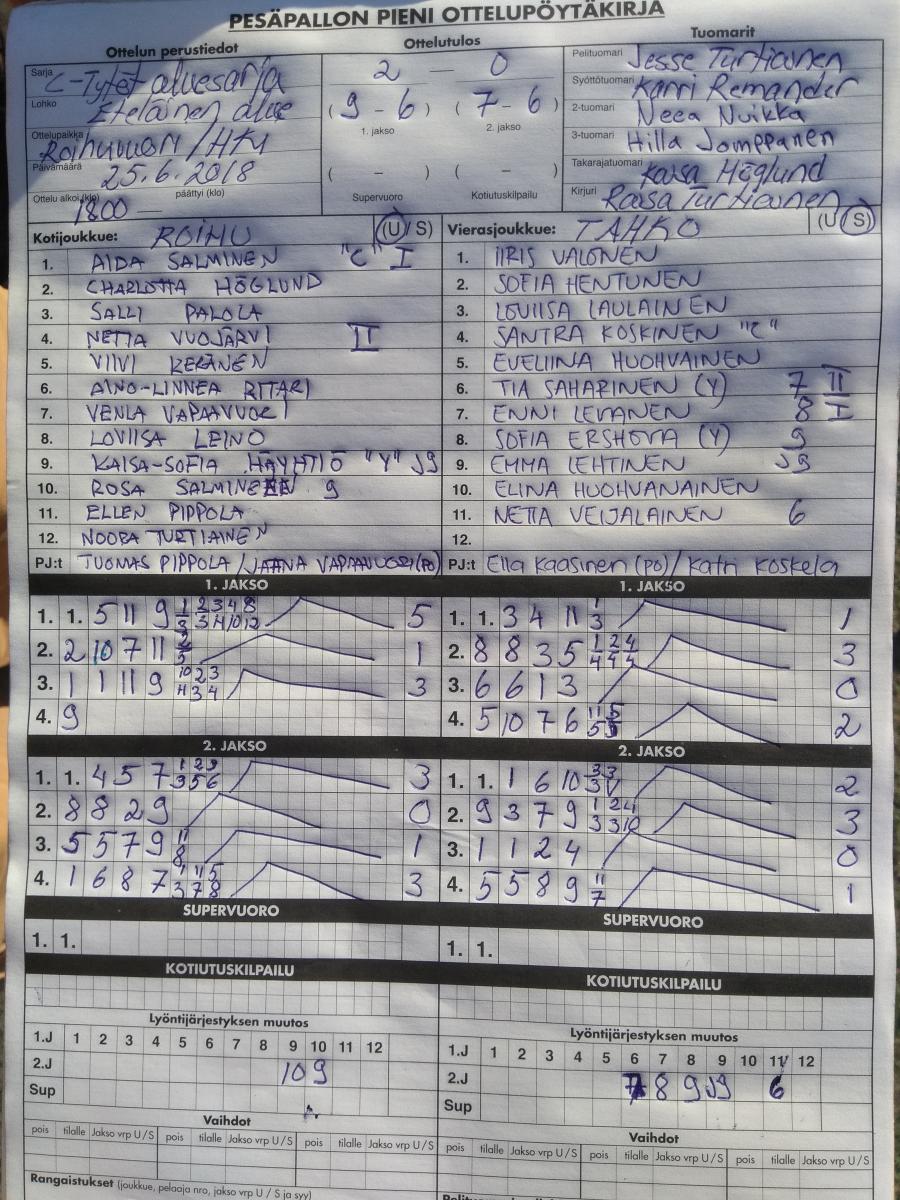 PESÄPALLON PIENI OTTELUPÖYTÄKIRJA
Ottelun perustiedot
Sarja C-Tytöt aluesarja
Lohko Eteläinen alue
Ottelupaikka Roihuvuori / HKI
Päivämäärä 25.6.2018
Ottelu alkoi (klo) 1800 — päättyi (klo)
Ottelutulos
2 — 0
(9 - 6) (7 - 6)
1. jakso 2. jakso
( - ) ( - )
Supervuoro Kotiutuskilpailu
Tuomarit
Pelituomari Jesse Turtiainen
Syöttötuomari Karri Remander
2-tuomari Neea Nuikka
3-tuomari Hilla Jomppanen
Takarajatuomari Kaisa Höglund
Kirjuri Raisa Turtiainen
Kotijoukkue: ROIHU (U/S)
1. AIDA SALMINEN "C" I
2. CHARLOTTA HÖGLUND
3. SALLI PALOLA
4. NETTA VUOJÄRVI II
5. VIIVI KERÄNEN
6. AINO-LINNEA RITARI
7. VENLA VAPAAVUORI
8. LOVIISA LEINO
9. KAISA-SOFIA HÄYHTIÖ "Y" J9
10. ROSA SALMINEN 9
11. ELLEN PIPPOLA
12. NOORA TURTIAINEN
PJ:t TUOMAS PIPPOLA / JAANA VAPAAVUORI (PO)
Vierasjoukkue: TAHKO (U/S)
1. IIRIS VALONEN
2. SOFIA HENTUNEN
3. LOVIISA LAULAINEN
4. SANTRA KOSKINEN "C"
5. EVELIINA HUOHVAINEN
6. TIA SAHARINEN (Y) 7 II
7. ENNI LEVANEN 8 I
8. SOFIA ERSHOVA (Y) 9
9. EMMA LEHTINEN J9
10. ELINA HUOHVANAINEN
11. NETTA VEIJALAINEN 6
12.
PJ:t Ella Kaasinen (PO) / Katri Koskela
1. JAKSO
1. 1. 5 11 9 5
2. 2 10 7 11 1
3. 1 1 11 9 3
4. 9
1. JAKSO
1. 1. 3 4 11 1
2. 8 8 3 5 3
3. 6 6 1 3 0
4. 5 10 7 6 2
2. JAKSO
1. 1. 4 5 7 3
2. 8 8 2 9 0
3. 5 5 7 9 1
4. 1 6 8 7 3
2. JAKSO
1. 1. 1 6 10 2
2. 9 3 7 9 3
3. 1 1 2 4 0
4. 5 5 8 9 1
SUPERVUORO
1. 1.
SUPERVUORO
1. 1.
KOTIUTUSKILPAILU
KOTIUTUSKILPAILU
Lyöntijärjestyksen muutos
1.J 1 2 3 4 5 6 7 8 9 10 11 12
2.J 10 9
Sup
Lyöntijärjestyksen muutos
1.J 1 2 3 4 5 6 7 8 9 10 11 12
2.J 7 8 9 J9 6
Sup
Vaihdot
pois tilalle Jakso vrp U/S pois tilalle Jakso vrp U/S pois tilalle Jakso vrp U/S
Vaihdot
pois tilalle Jakso vrp U/S pois tilalle Jakso vrp U/S pois tilalle Jakso vrp U/S
Rangaistukset (joukkue, pelaaja nro, jakso vrp U / S ja syy)